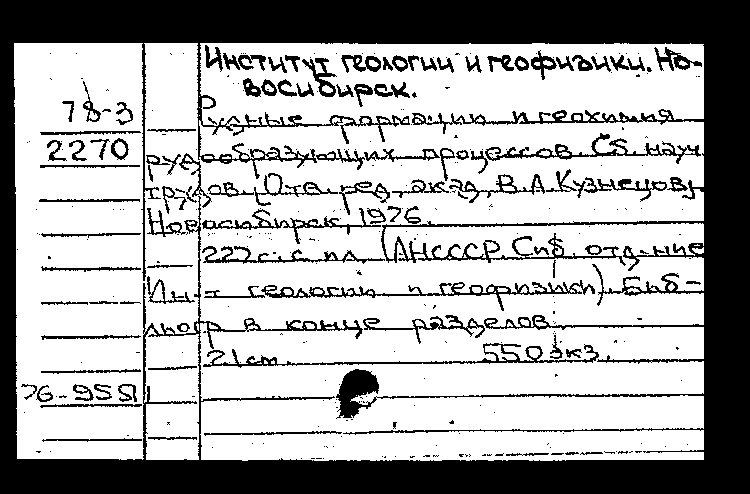 Институт геологии и геофизики. Но-
восибирск.
78-3
Рудные формации и геохимия
2270
рудообразующих процессов. Сб. науч.
трудов. [Отв. ред. акад. В.А. Кузнецов].
Новосибирск, 1976.
227 с. с ил. (АН СССР. Сиб. отд-ние
Ин-т геологии и геофизики). Биб-
льогр в конце разделов.
21 см. 550 экз.
76-9551